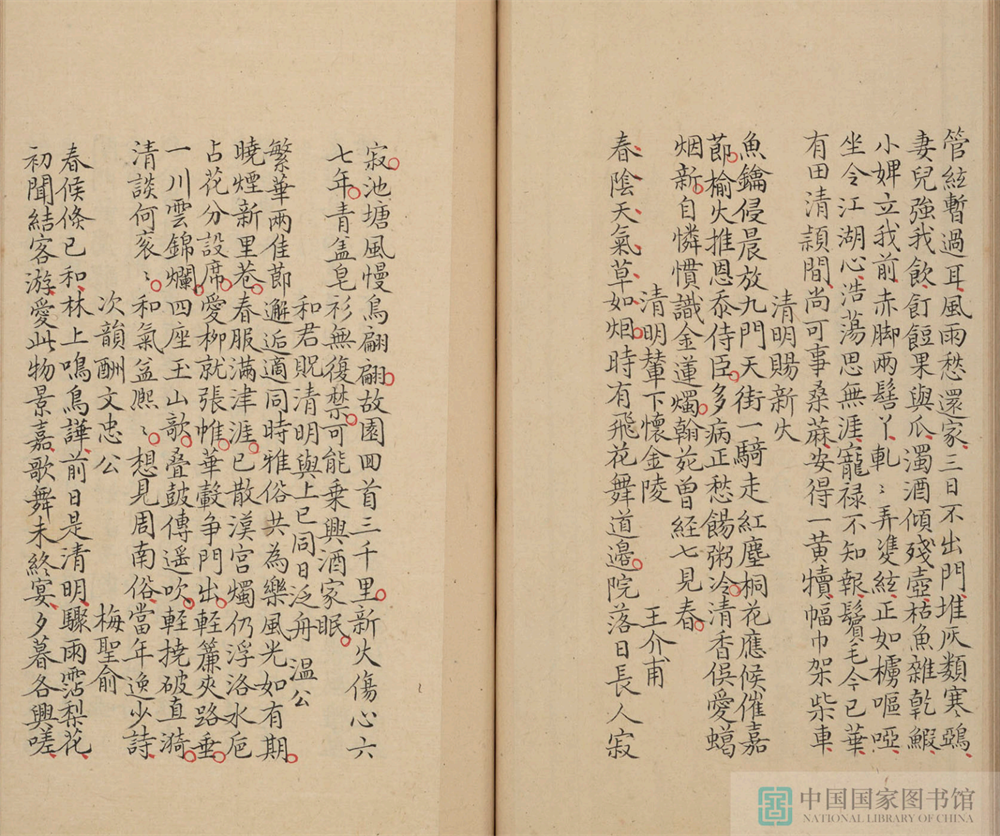 管絃暫過耳風雨愁還家三日不出門堆灰類寒鵶
妻兒強我飲飣餖果與瓜濁酒傾殘壺枯魚雜乾鰕
小婢立我前赤脚兩髻丫軋〻弄雙絃正如櫓嘔啞
坐令江湖心浩蕩思無涯寵禄不知報鬢毛今已華
有田清潁間尚可事桑蔴安得一黄犢幅巾架柴車
清明賜新火
魚鑰侵晨放九門天街一騎走紅塵桐花應候催嘉
節榆火推恩忝侍臣多病正愁餳粥冷清香俣愛蠟
烟新自憐慣識金蓮燭翰苑曽経七見春
清明輦下懷金陵 王介甫
春陰天氣草如烟時有飛花舞道邉院落日長人寂
寂池塘風慢鳥翩翩故園囬首三千里新火傷心六
七年青盖皂衫無復禁可能乗興酒家眠
和君貺清明與上巳同日泛舟 温公
繁華兩佳節邂逅適同時雅俗共為樂風光如有期
曉煙新里巷春服满津涯已散漢宫燭仍浮洛水巵
占花分設席愛柳就張帷華轂争門出輕簾夾路垂
一川雲錦爛四座玉山欹叠鼓傳遥吹輕撓破直漪
清談何衮〻和氣益熙〻想見周南俗當年逸少詩
次韻酬文忠公 梅聖俞
春候倏已和林上鳴鳥譁前日是清明驟雨霑梨花
初聞結客游愛此物景嘉歌舞未終宴夕暮各興嗟
中国国家图书馆
NATIONAL LIBRARY OF CHINA